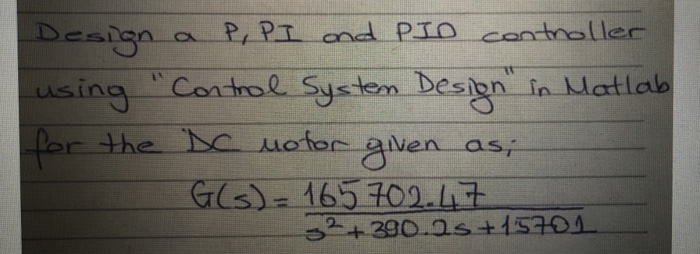 Design a P, PI and PID controller
using "Control System Design" in Matlab
for the DC motor given as;
G(s) = 165702.47
s² + 390.2s + 15701